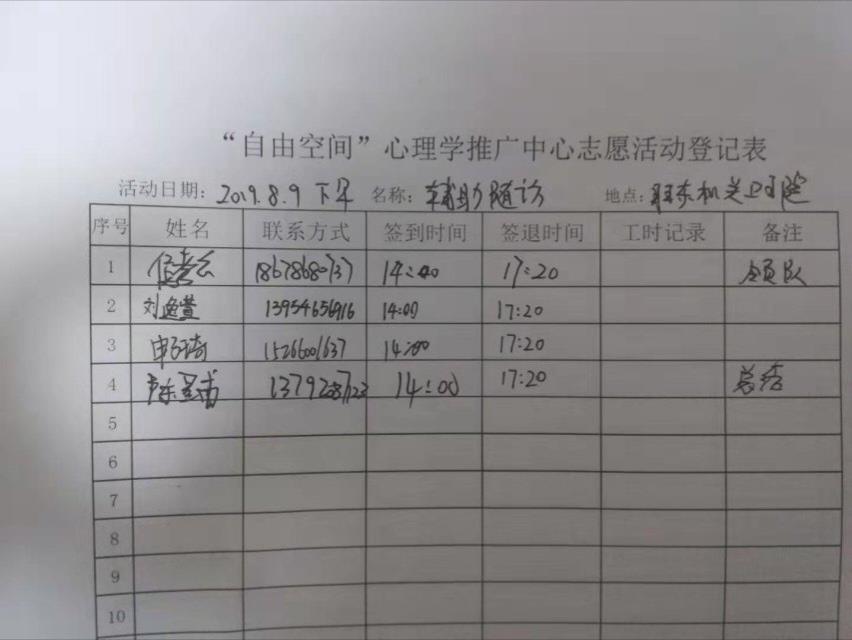 “自由空间”心理学推广中心志愿活动登记表
活动日期: 2019.8.9 下午 名称: 辅助随访 地点:
序号 姓名 联系方式 签到时间 签退时间 工时记录 备注
1 18678680737 14:00 17:20 领队
2 刘逸萱 13954656916 14:00 17:20
3 15266001637 14:00 17:20
4 14:00 17:20 总结
5
6
7
8
9
10